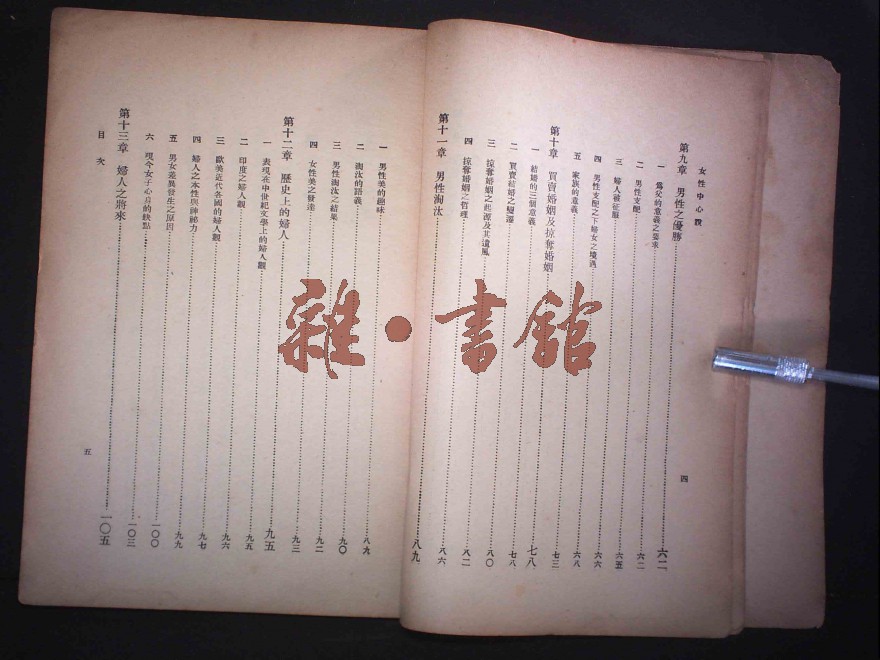 女性中心說
第九章 男性之優勝 六二
一 爲父的意義之要求 六二
二 男性支配 六二
三 婦人被征服 六五
四 男性支配之下婦女之境遇 六六
五 家族的意義 六八
第十章 買賣婚姻及掠奪婚姻 七三
一 結婚的三個意義 七八
二 買賣結婚之變遷 七八
三 掠奪婚姻之起源及其遺風 八〇
四 掠奪婚姻之哲理 八二
第十一章 男性淘汰 八九
四
一 男性美的趣味 八九
二 淘汰的語義 九〇
三 男性淘汰之結果 九二
四 女性美之發達 九三
第十二章 歷史上的婦人 九五
一 表現在中世紀文學上的婦人觀 九五
二 印度之婦人觀 九五
三 歐美近代各國的婦人觀 九六
四 婦人之本性與神祕力 九七
五 男女差異發生之原因 九九
六 現今女子心身的缺點 一〇〇
第十三章 婦人之將來 一〇五
目次
五
雜·書館